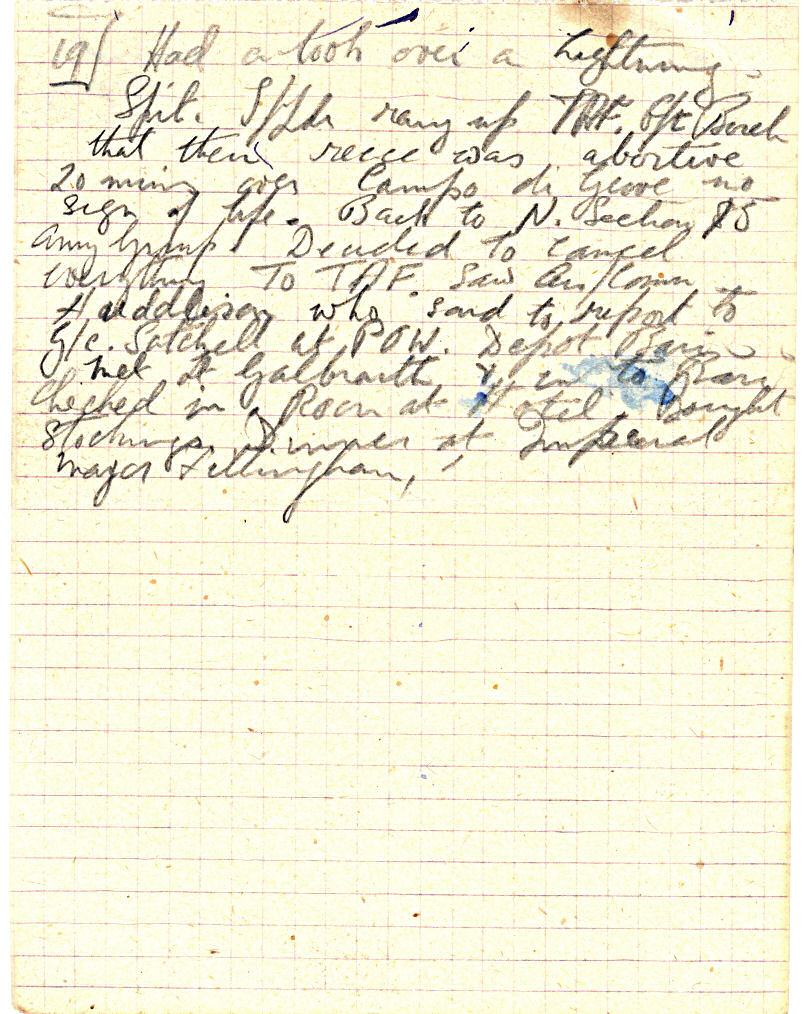 19/ Had a look over a Lightning
Spit. S/Ldr rang up TAF. G/C
that their recce was abortive
20 mins over Campo di Giove no
sign of life. Back to N. Section 15
Army Group. Decided to cancel
everything to TAF. Saw Air/Comm
Huddleson who said to report to
G/c. Satchell at POW. Depot Bari
Met Lt Galbraith & in to Bari
Checked in Room at Hotel Bought
Stockings. Dinner at Imperial
Major Fillingham,